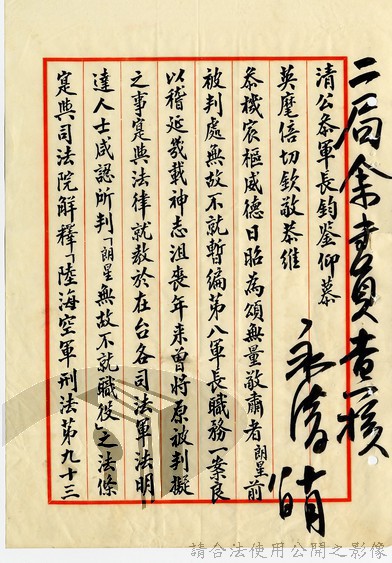 二局余專員查核
永清
清公參軍長鈞鑒仰慕
英麾倍切欽敬恭維
參機宸樞威德日昭為頌無量敬肅者朗星前
被判處無故不就暫編第八軍長職務一案良
以稽延幾載神志沮喪年來曾將原被判擬
之事寔與法律就教於在台各司法軍法明
達人士咸認所判「朗星無故不就職役」之法條
寔與司法院解釋「陸海空軍刑法第九十三
請合法使用公開之影像